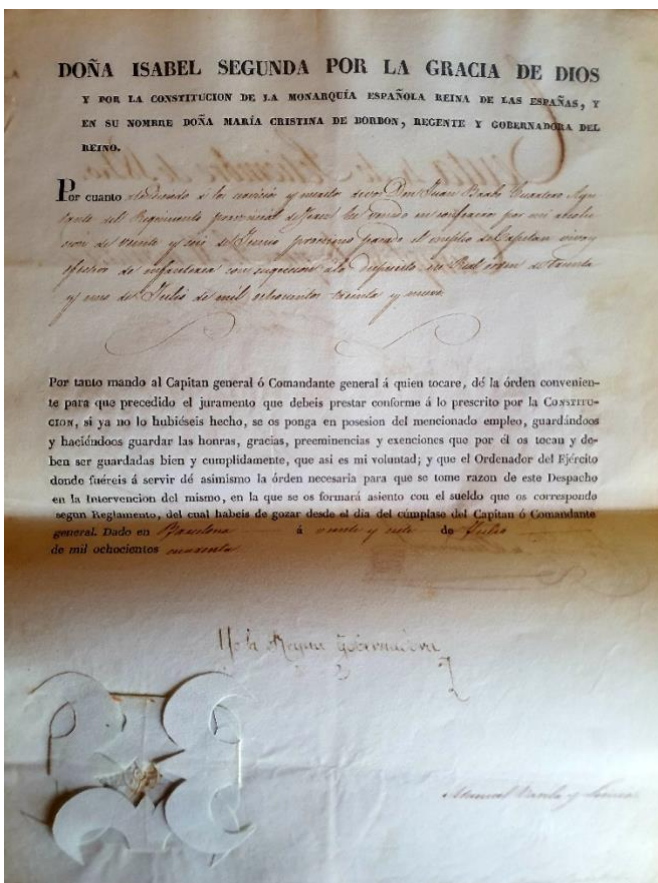 DOÑA ISABEL SEGUNDA POR LA GRACIA DE DIOS
Y POR LA CONSTITUCION DE LA MONARQUÍA ESPAÑOLA REINA DE LAS ESPAÑAS, Y
EN SU NOMBRE DOÑA MARÍA CRISTINA DE BORBON, REGENTE Y GOBERNADORA DEL
REINO.
Por cuanto atendiendo a los servicios y meritos de vos Don Juan
del Regimiento provincial de he venido en conferiros por mi
de veinte y seis de Junio proximo pasado el empleo de Capitan vivo y
efectivo de infanteria con a lo dispuesto en Real orden de treinta
y uno de Julio de mil ochocientos treinta y nueve
Por tanto mando al Capitan general ó Comandante general á quien tocare, dé la órden convenien-
te para que precedido el juramento que debeis prestar conforme á lo prescrito por la CONSTITU-
CION, si ya no lo hubiéseis hecho, se os ponga en posesion del mencionado empleo, guardándoos
y haciéndoos guardar las honras, gracias, preeminencias y exenciones que por él os tocan y de-
ben ser guardadas bien y cumplidamente, que asi es mi voluntad; y que el Ordenador del Ejército
donde fuéreis á servir dé asimismo la órden necesaria para que se tome razon de este Despacho
en la Intervencion del mismo, en la que se os formará asiento con el sueldo que os corresponde
segun Reglamento, del cual habeis de gozar desde el dia del cúmplase del Capitan ó Comandante
general. Dado en Barcelona á veinte y siete de Julio
de mil ochocientos cuarenta
Yo la Reyna Gobernadora
Manuel Varela y